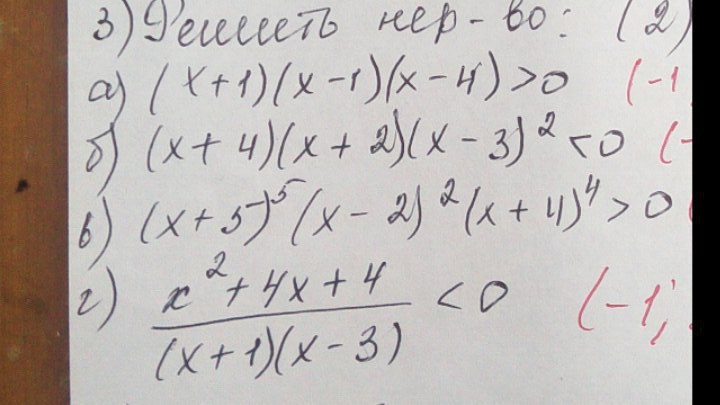 3) Решить нер-во: (2)
а) (x+1)(x-1)(x-4)>0 (-1
б) (x+4)(x+2)(x-3)²<0 (-
в) (x+5)⁵(x-2)²(x+4)⁴>0
г) \frac{x²+4x+4}{(x+1)(x-3)} < 0 (-1;